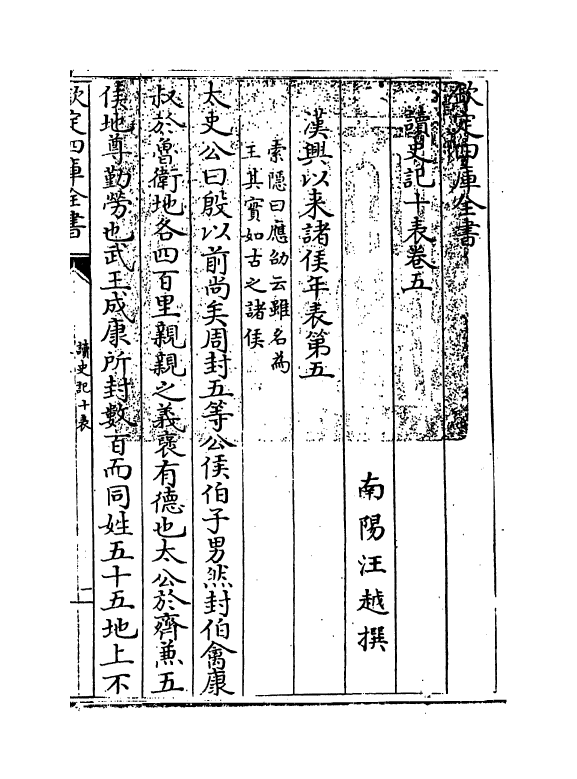 欽定四庫全書
讀史記十表卷五
南陽汪越撰
漢興以來諸侯年表第五
索隠曰應劭云雖名為
王其實如古之諸侯
太史公曰殷以前尚矣周封五等公侯伯子男然封伯禽康
叔於魯衛地各四百里親親之義襃有德也太公於齊兼五
侯地尊勤勞也武王成康所封數百而同姓五十五地上不
欽定四庫全書
讀史記十表
一